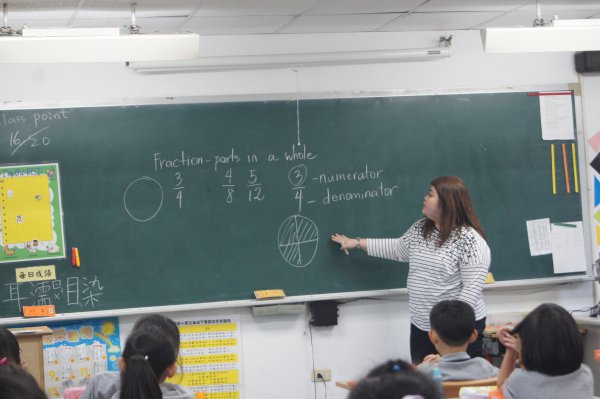 class point
16/20
Fraction - parts in a whole
3/4 4/8 5/12 3/4 - numerator
- denominator
每日成語
耳濡目染